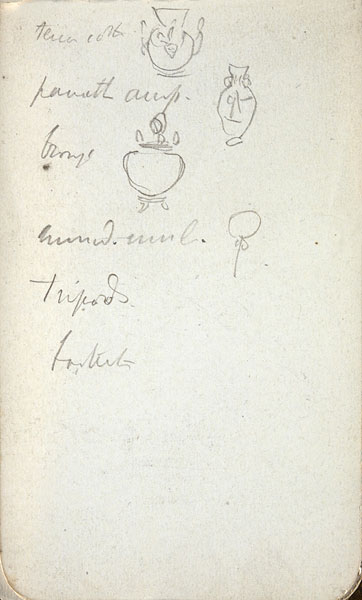 terra cott
panath amp.
bronze
tripods
baskets